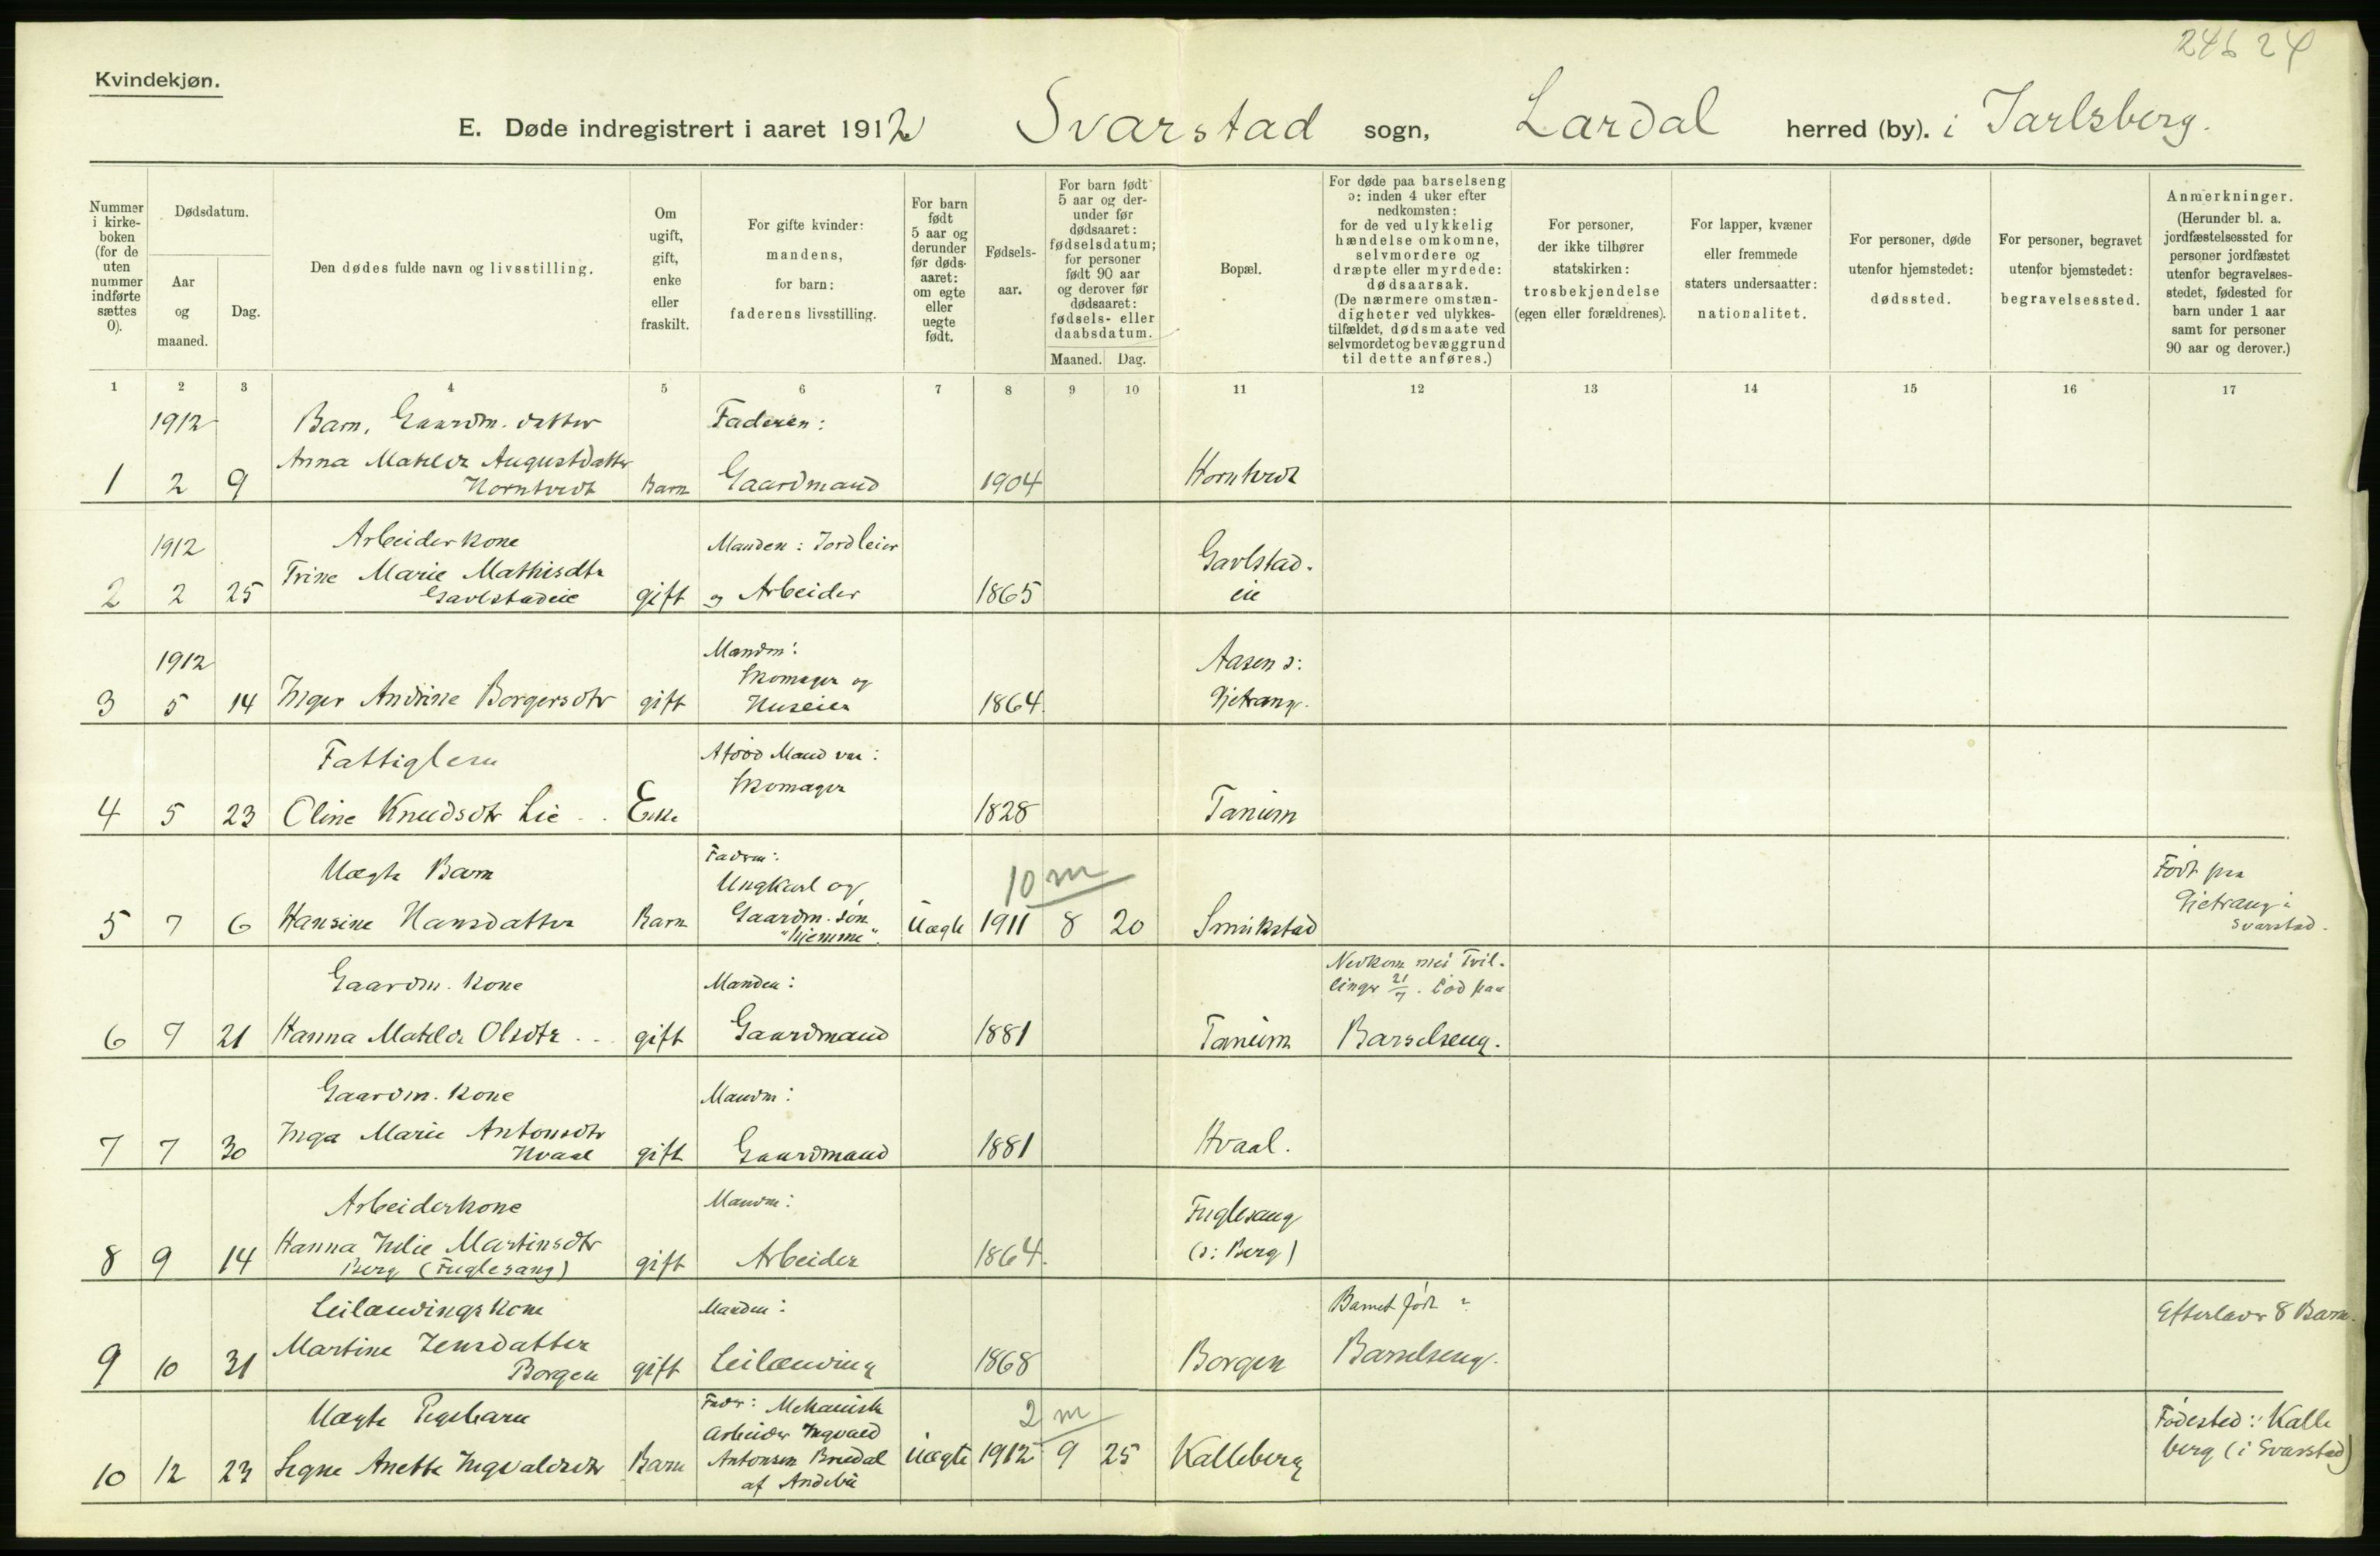 246 24
Kvindekjøn.
E. Døde indregistrert i aaret 1912 Svarstad sogn, Lardal herred (by). i Jarlsberg.
Nummer i kirke-boken (for de uten nummer indførte sættes 0).
Dødsdatum.
Aar og maaned.
Dag.
Den dødes fulde navn og livsstilling.
Om ugift, gift, enke eller fraskilt.
For gifte kvinder: mandens, for barn: faderens livsstilling.
For barn født 5 aar og derunder før døds-aaret: om egte eller uegte født.
Fødsels-aar.
For barn født 5 aar og der-under før dødsaaret: fødselsdatum; for personer født 90 aar og derover før dødsaaret: fødsels- eller daabsdatum.
Maaned. Dag.
Bopæl.
For døde paa barselseng ɔ: inden 4 uker efter nedkomsten: for de ved ulykkelig hændelse omkomne, selvmordere og dræpte eller myrdede: dødsaarsak. (De nærmere omstæn-digheter ved ulykkes-tilfældet, dødsmaate ved selvmordet og bevæggrund til dette anføres.)
For personer, der ikke tilhører statskirken: trosbekjendelse (egen eller forældrenes).
For lapper, kvæner eller fremmede staters undersaatter: nationalitet.
For personer, døde utenfor hjemstedet: dødssted.
For personer, begravet utenfor hjemstedet: begravelsessted.
Anmerkninger. (Herunder bl. a. jordfæstelsessted for personer jordfæstet utenfor begravelses-stedet, fødested for barn under 1 aar samt for personer 90 aar og derover.)
1 2 3 4 5 6 7 8 9 10 11 12 13 14 15 16 17
1912 Barn, Gaardm. datter Faderen:
Anna Matilde Augustdatter
1 2 9 Korntvedt Barn Gaardmand 1904 Korntvedt
1912 Arbeiderkone Manden: Jordleier Gavlstad-
Trine Marie Mathisdtr
2 2 25 Gavlstadeie gift og Arbeider 1865 eie
1912 Manden: Aasen ɔ:
Skomager og
3 5 14 Inger Andrine Borgersdtr gift Huseier 1864. Gjetrang.
Fattiglem Afdød Mand var:
Skomager
4 5 23 Oline Knudsdtr Lie . . Enke 1828 Tanum
Uægte Barn Faderen: 10 m Født paa
Ungkarl og Gjetrang i
5 7 6 Hansine Hansdatter Barn Gaardm. søn Uægte 1911 8 20 Smukstad Svarstad.
"hjemme".
Gaardm. kone Manden: Nedkom med Tvil-
linger 21/7. Død paa
6 7 21 Hanna Matilde Olsdtr . . gift Gaardmand 1881 Tanum Barselseng.
Gaardm. kone Manden:
Inga Marie Antonsdtr
7 7 30 Hvaal gift Gaardmand 1881 Hvaal.
Arbeiderkone Manden: Fuglesang
Hanna Julie Martinsdtr
8 9 14 Berg (Fuglesang) gift Arbeider 1864. (ɔ: Berg)
Leilændingskone Manden: Barnet født Efterlader 8 Barn.
Martine Jensdatter
9 10 31 Borgen gift Leilænding 1868 Borgen Barselseng.
Uægte Pigebarn Fader: Mekanisk 2 m Fødested: Kalle
Arbeider Ingvald
10 12 23 Signe Anette Ingvaldsdtr Barn Antonsen Bredal Uægte 1912 9 25 Kalleberg berg (i Svarstad)
af Andebu